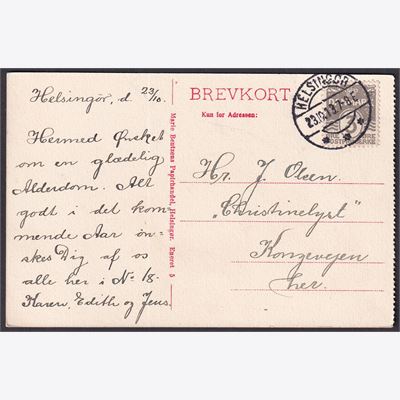 Helsingör, d. 23/10.
Hermed Ønsket
om en glædelig
Alderdom. Alt
godt i det kom-
mende Aar ön-
skes Dig af os
alle her i No 18.
Karen, Edith og Jens.
Marie Bentsens Papirhandel, Helsingør. Eneret 5
BREVKORT
Kun for Adressen:
HELSINGØR
Hr. J. Olsen.
"Christinelyst"
Kongevejen
her.